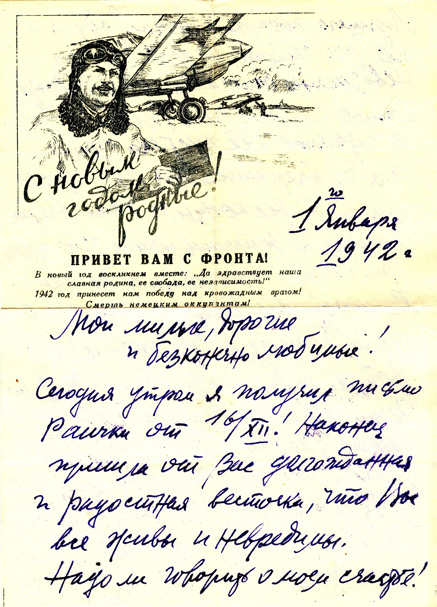 С новым
годом,
родные!
1го Января
1942 г
ПРИВЕТ ВАМ С ФРОНТА!
В новый год воскликнем вместе: „Да здравствует наша
славная родина, ее свобода, ее независимость!"
1942 год принесет нам победу над кровожадным врагом!
Смерть немецким оккупантам!
Мои милые, дорогие
и безконечно любимые!
Сегодня утром я получил письмо
Раички от 16/XII! Наконец
пришла от Вас долгожданная
и радостная весточка, что Вы
все живы и невредимы.
Надо ли говорить о моем счастье!